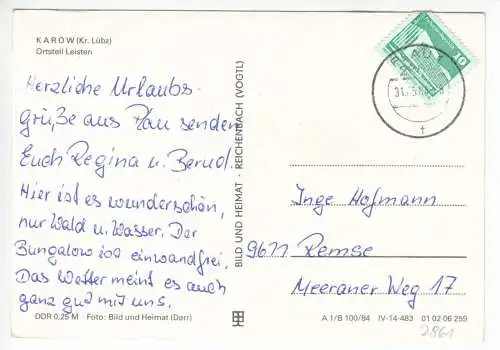 KAROW (Kr. Lübz)
Ortsteil Leisten
Herzliche Urlaubs-
grüße aus Plau senden
Euch Regina u. Bernd.
Hier ist es wunderschön,
nur Wald u. Wasser. Der
Bungalow ist einwandfrei.
Das Wetter meint es auch
ganz gut mit uns.
DDR 0,25 M Foto: Bild und Heimat (Darr)
BILD UND HEIMAT · REICHENBACH (VOGTL)
10
Inge Hofmann
9611 Remse
Meeraner Weg 17
A 1/B 100/84 IV-14-483 01 02 06 259
2861